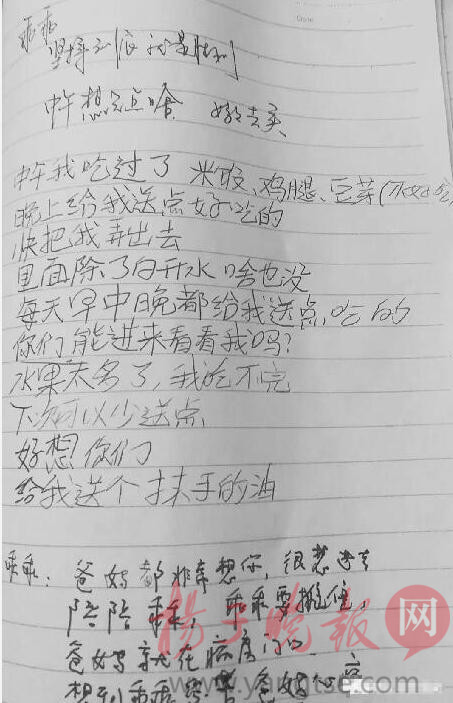 Date
乖乖
坚持
中午想吃点啥 妈去买
中午我吃过了 米饭、鸡腿、豆芽(不好吃)
晚上给我送点好吃的
快把我弄出去
里面除了白开水啥也没
每天早中晚都给我送点吃的
你们能进来看看我吗?
水果太多了,我吃不完
下次可以少送点
好想你们
给我送个抹手的油
乖乖:爸妈都非常想你,很想进去
陪陪乖乖,乖乖要挺住,
爸妈就在病房门口
想到乖乖 爸妈心疼
扬子晚报网
www.yangtse.com